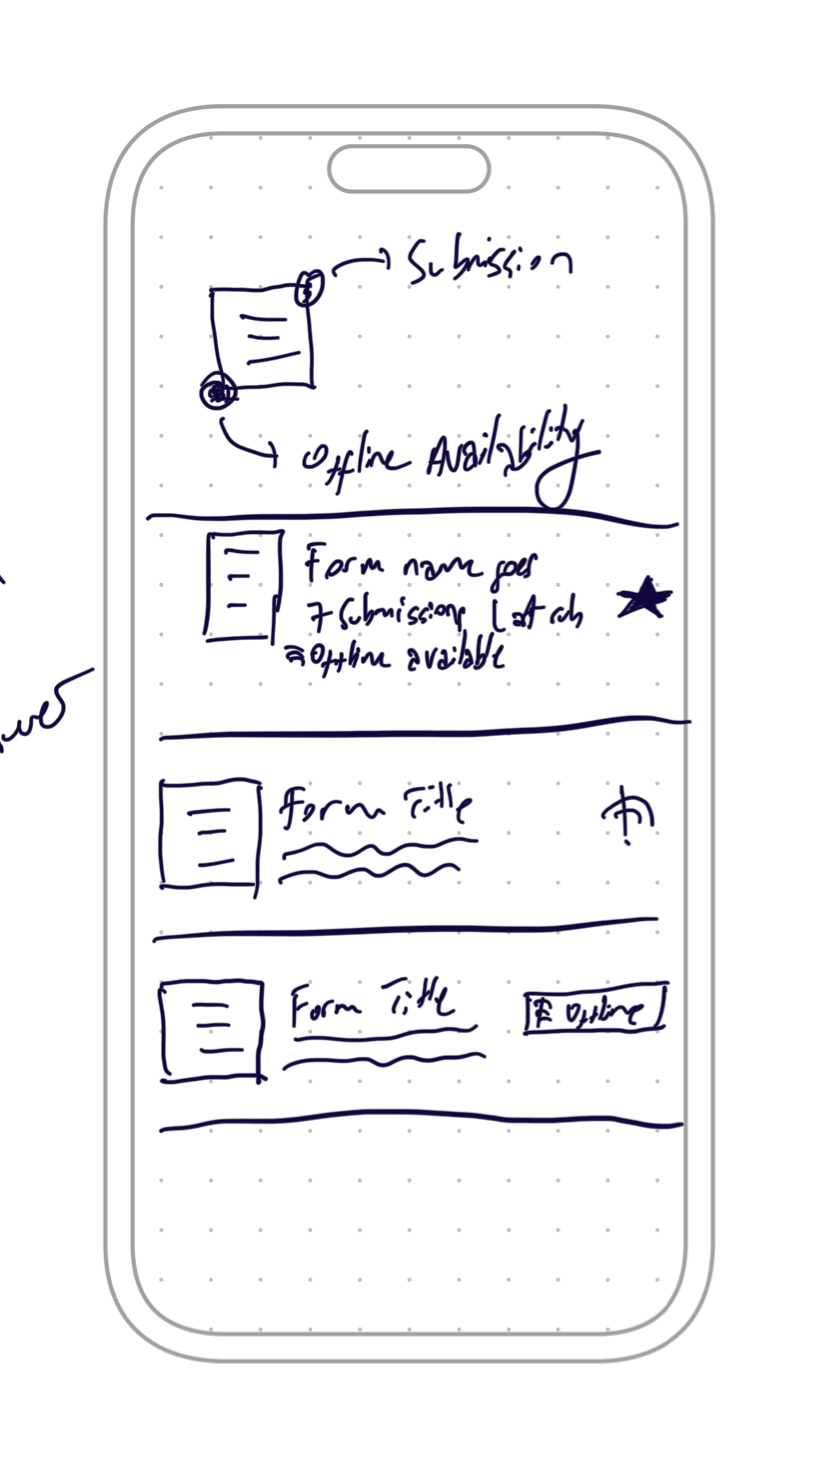 Submission
Offline Availability
Form name goes
7 Submissions
Offline available
Form Title
Form Title
Offline